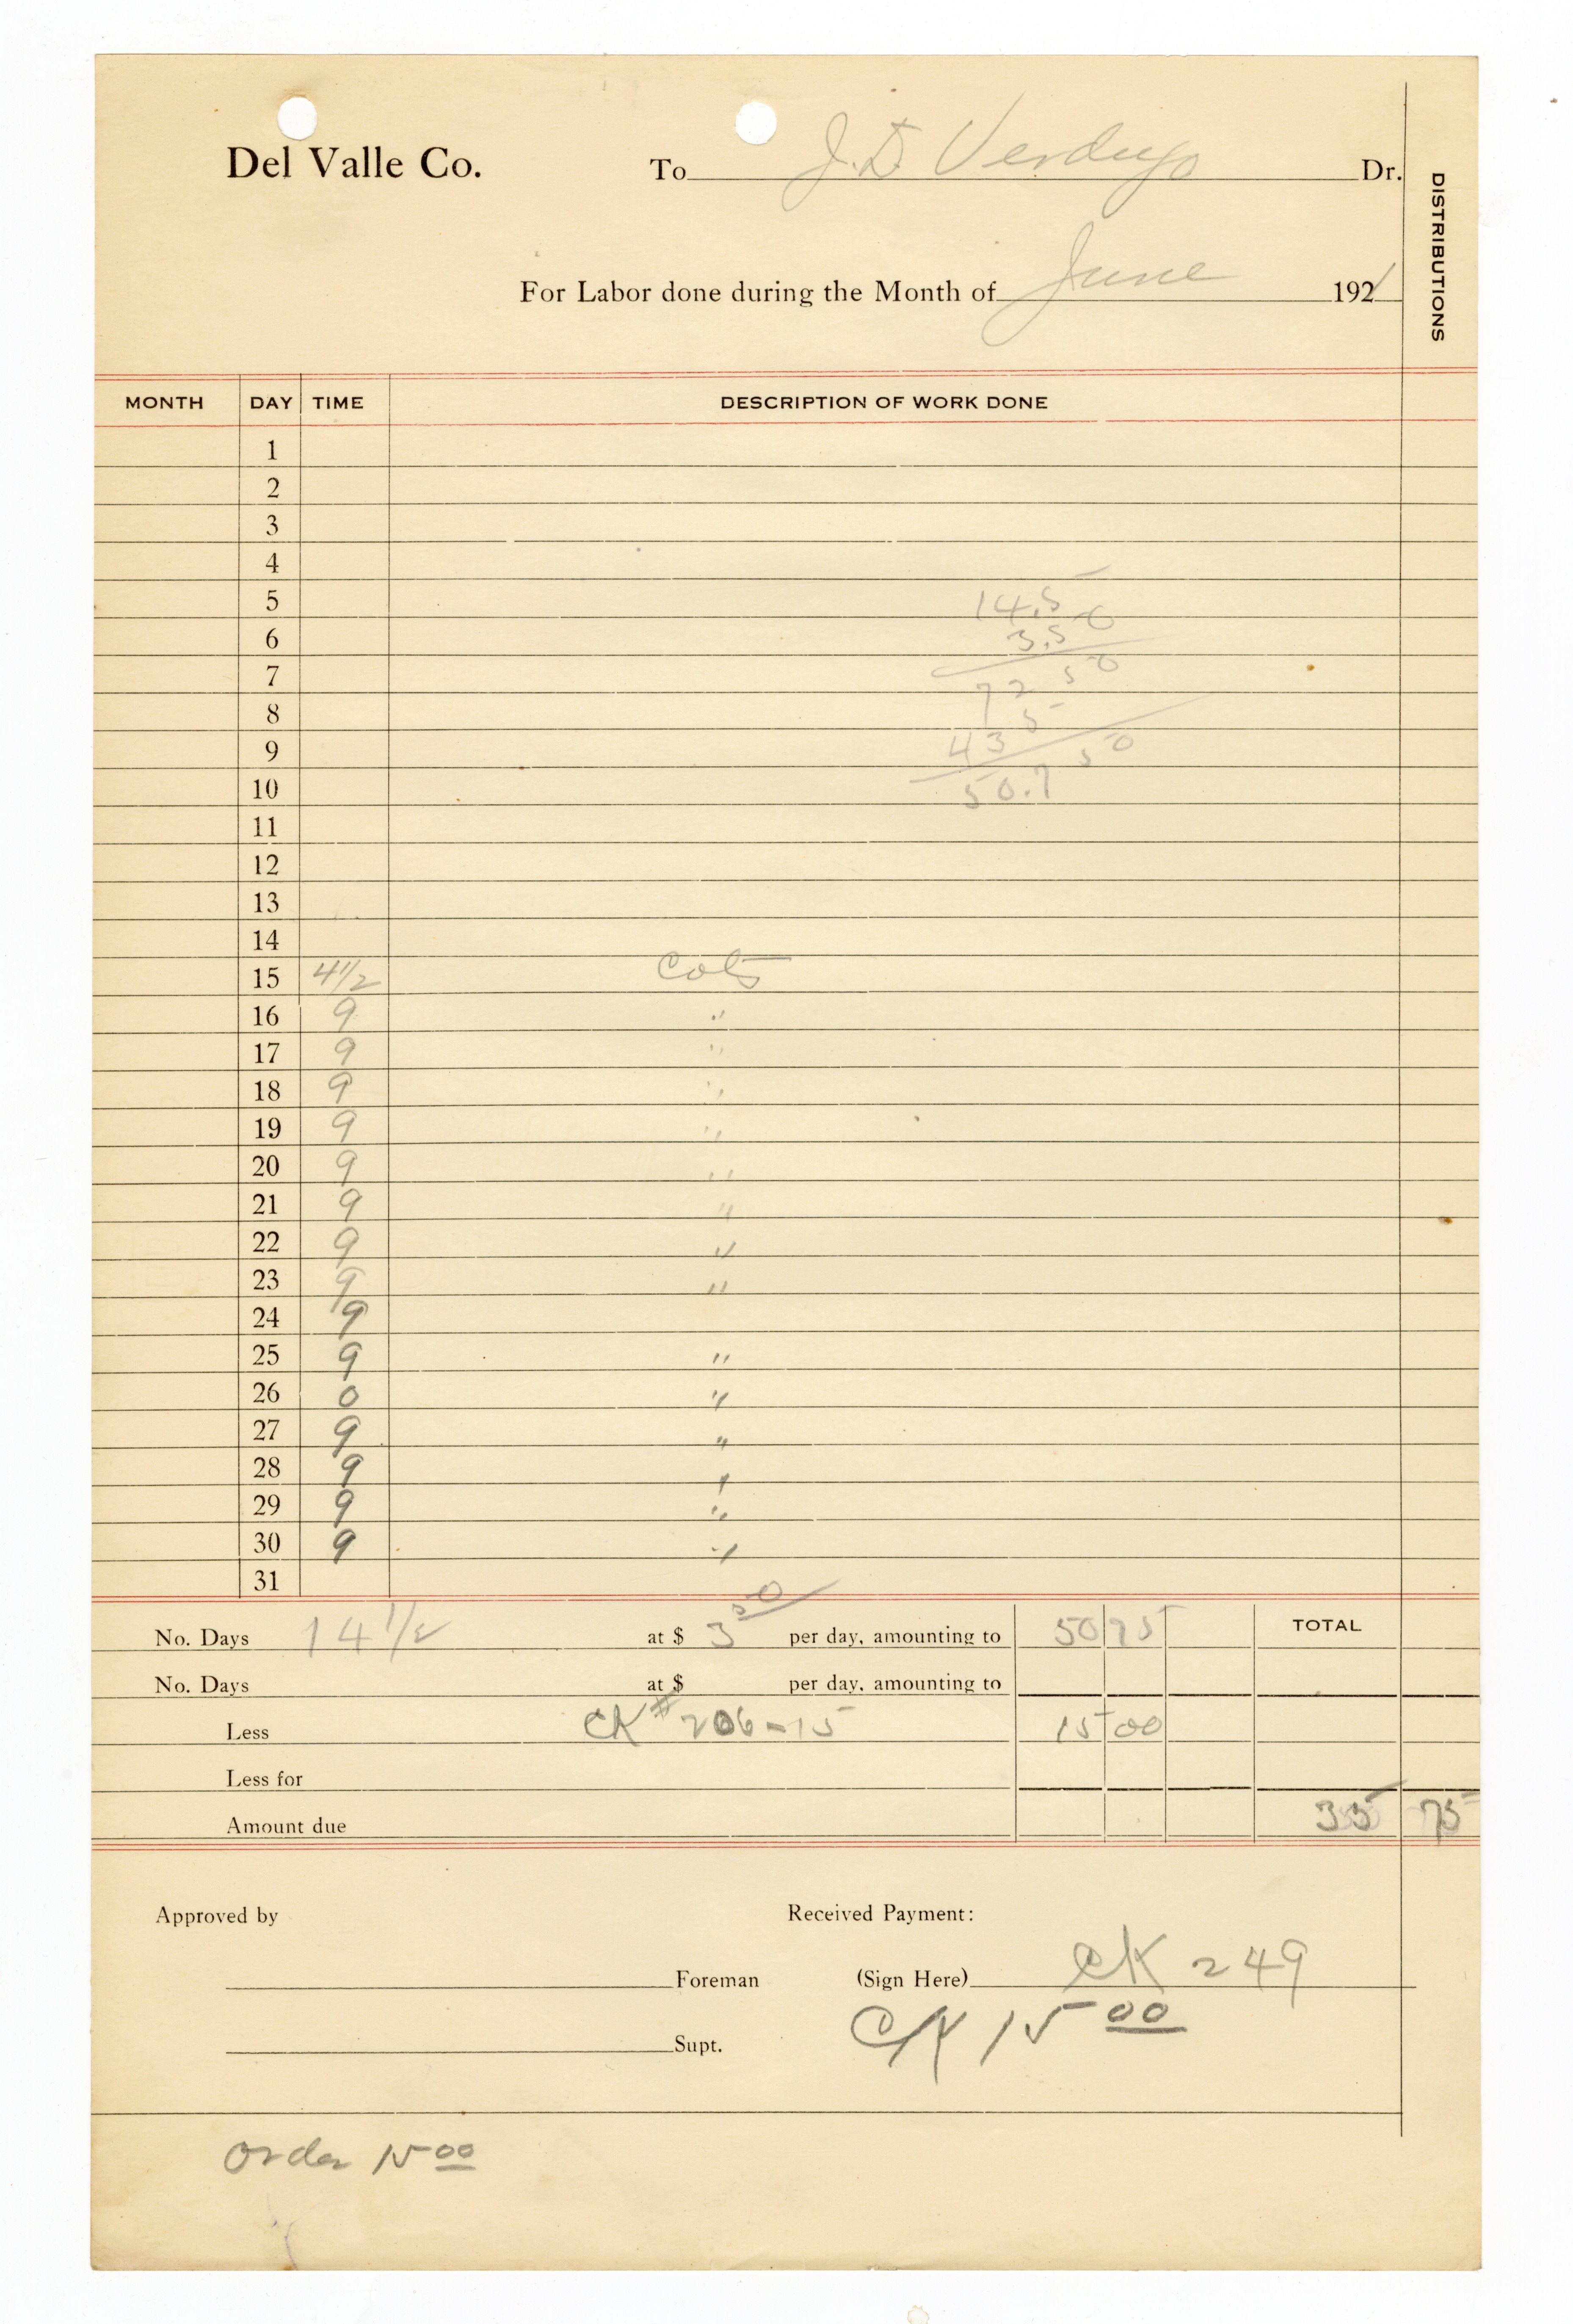 Del Valle Co. To J.D. Verdugo Dr.
DISTRIBUTIONS
For Labor done during the Month of June 1921
MONTH DAY TIME DESCRIPTION OF WORK DONE
1
2
3
4
5 14.5
6 3.50
7 72 50
8
9 43 5
10 50.7 50
11
12
13
14
15 4 1/2
16 9 "
17 9 "
18 9 "
19 9 "
20 9 "
21 9 "
22 9 "
23 9 "
24 9
25 9 "
26 0 "
27 9 "
28 9 "
29 9 "
30 9 "
31
No. Days 14 1/2 at $ 3 50 per day, amounting to 50 75 TOTAL
No. Days at $ per day, amounting to
Less CK # 206 - 15 15 00
Less for
Amount due 35 75
Approved by Received Payment:
Foreman (Sign Here) CK 249
Supt. CK 15 00
Order 15 00